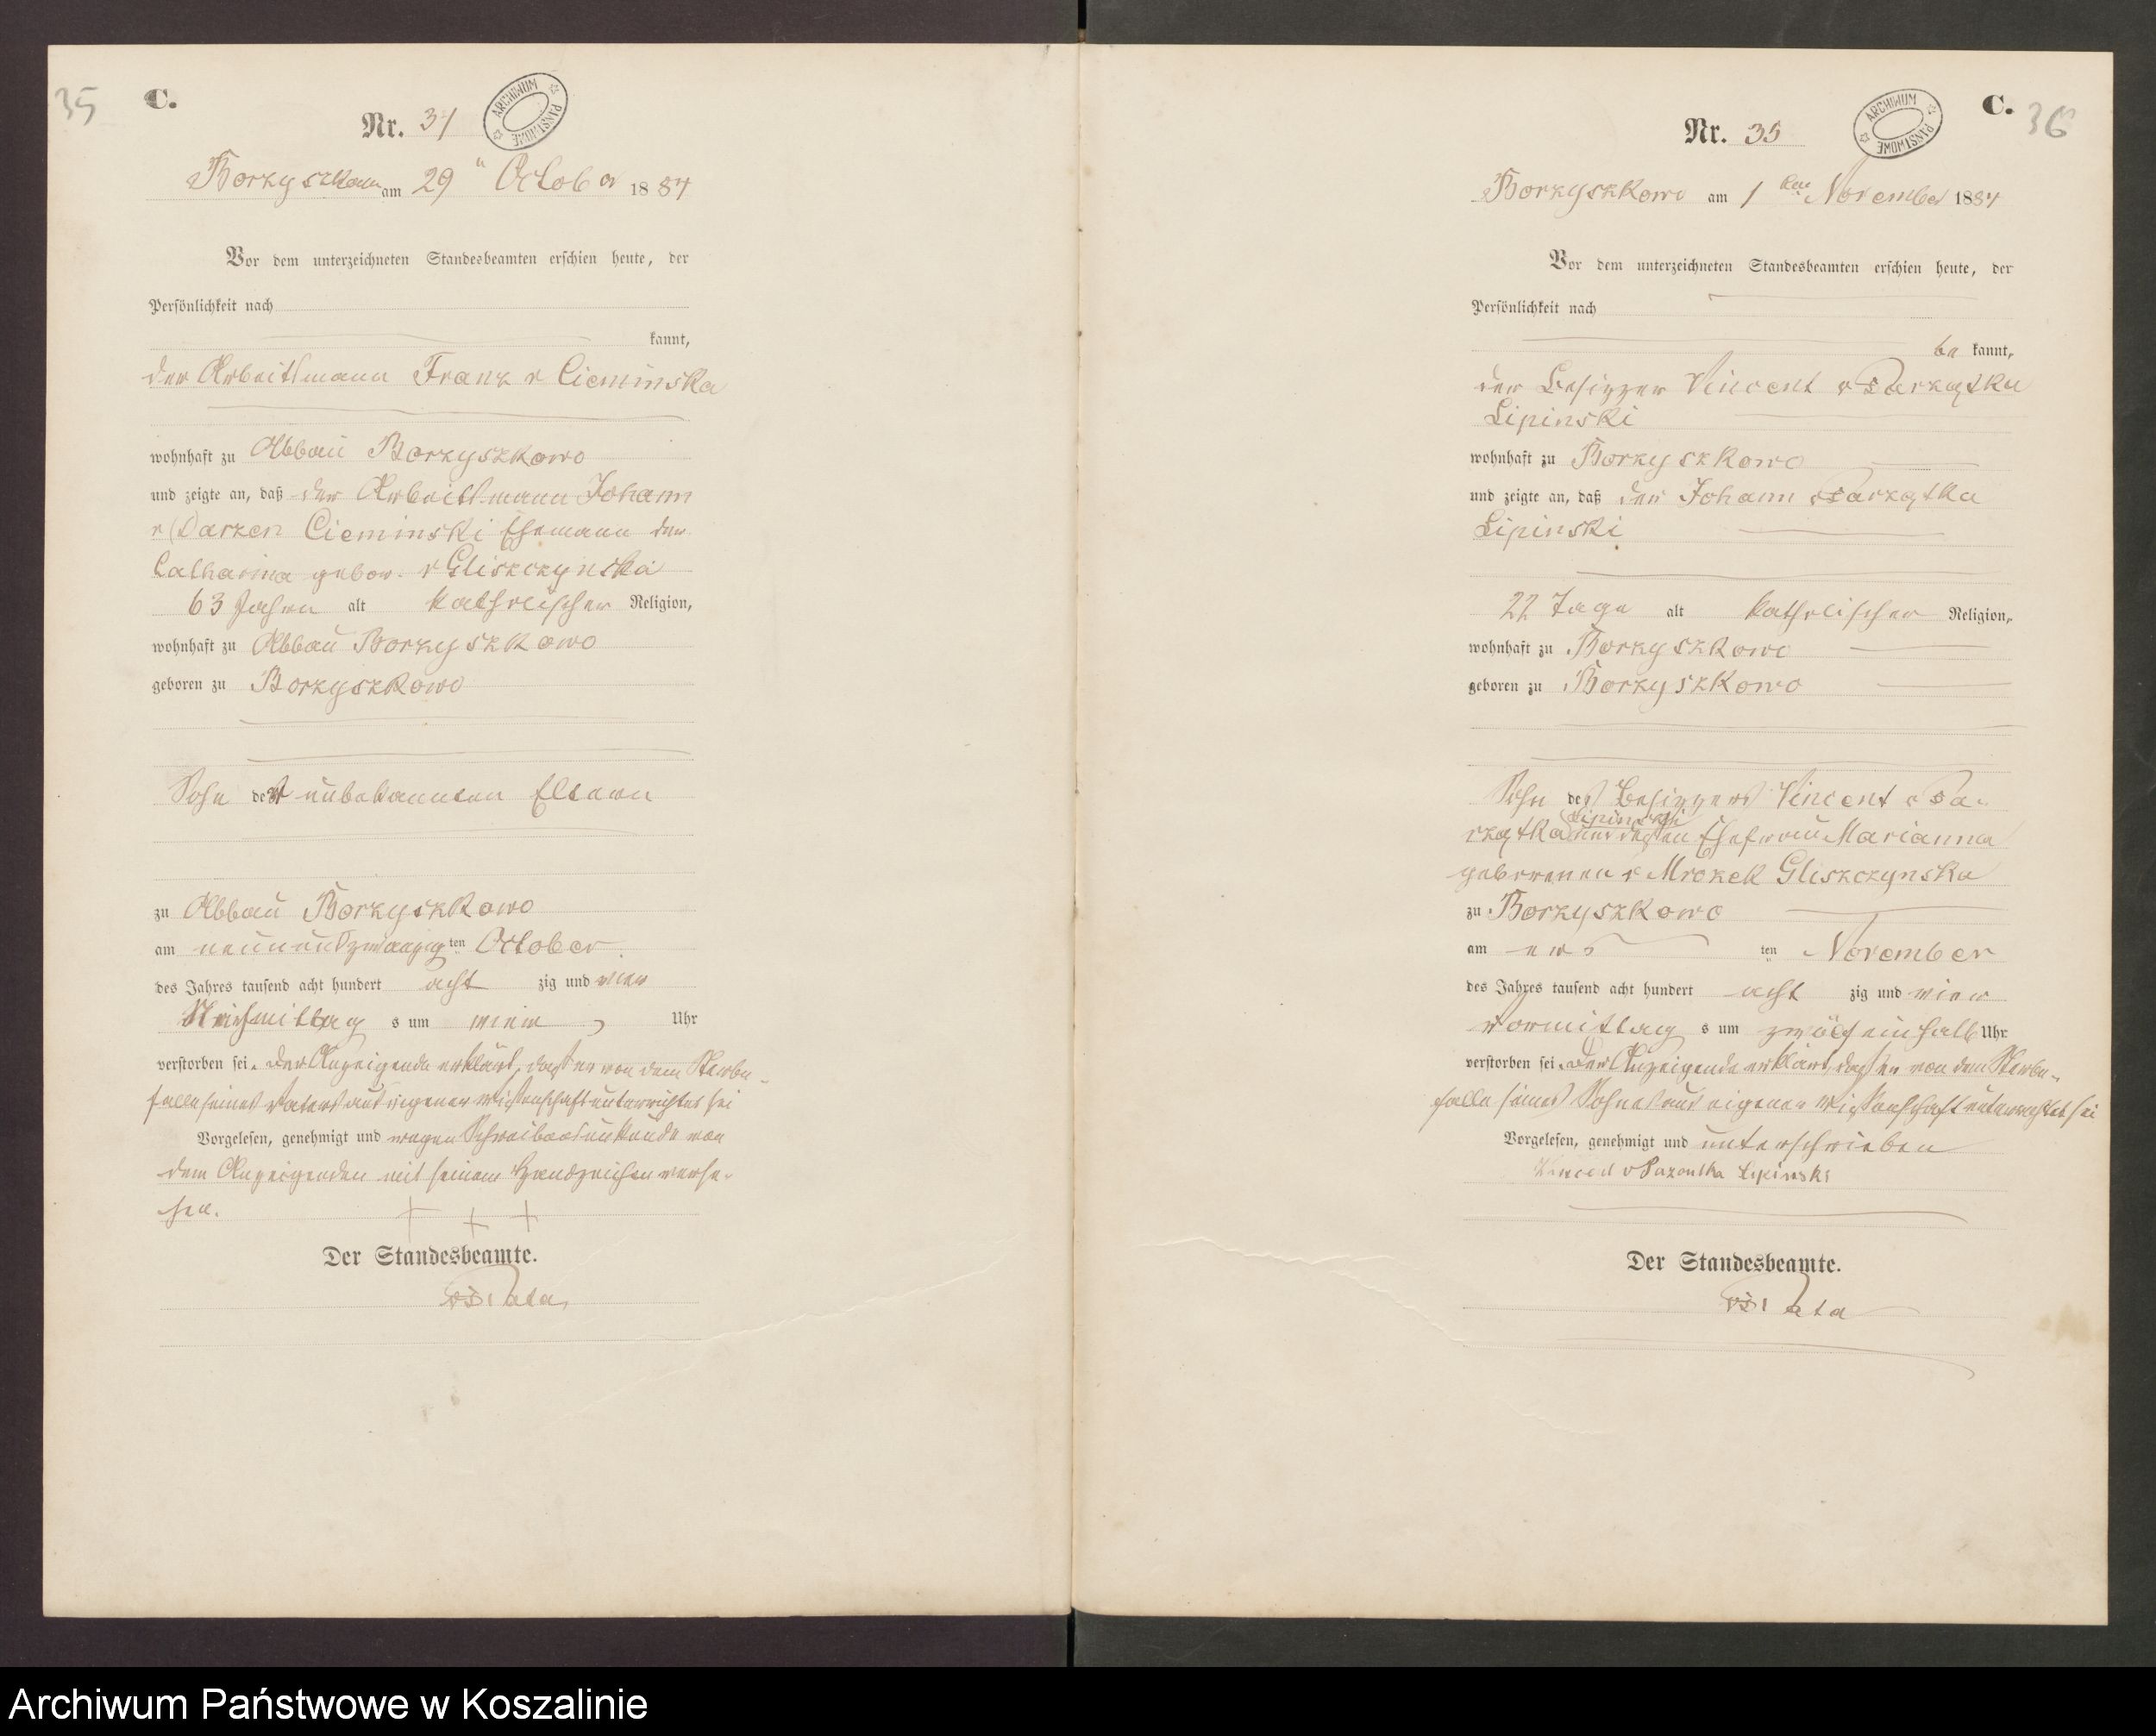 35
C.
Nr. 34
ARCHIWUM PAŃSTWOWE
Borzyszkowo am 29" October 1884
Vor dem unterzeichneten Standesbeamten erschien heute, der
Persönlichkeit nach
kannt,
der Arbeitsmann Franz v Cieminska
wohnhaft zu Abbau Borzyszkowo
und zeigte an, daß der Arbeitsmann Johann
v Darzen Cieminski Ehemann der
Catharina gebor. v Gliszczynska
63 Jahren alt katholischer Religion,
wohnhaft zu Abbau Borzyszkowo
geboren zu Borzyszkowo
Sohn der unbekannten Eltern
zu Abbau Borzyszkowo
am neunundzwanzigten October
des Jahres tausend acht hundert acht zig und vier
Nachmittag s um vier Uhr
verstorben sei. Der Anzeigende erklärt, daß er von dem Sterbe-
falle seines Vaters aus eigener Wissenschaft unterrichtet sei
Vorgelesen, genehmigt und wegen Schreibensunkunde von
dem Anzeigenden mit seinem Handzeichen verse-
hen.
+ + +
Der Standesbeamte.
36
C.
Nr. 35
ARCHIWUM PAŃSTWOWE
Borzyszkowo am 1ten November 1884
Vor dem unterzeichneten Standesbeamten erschien heute, der
Persönlichkeit nach
be kannt,
der Besitzer Vincent v
Lipinski
wohnhaft zu Borzyszkowo
und zeigte an, daß der Johann
Lipinski
22 Tage alt katholischer Religion,
wohnhaft zu Borzyszkowo
geboren zu Borzyszkowo
Sohn des Besitzers Vincent v
Lipinski
und dessen Ehefrau Marianna
geborenen v Mrozek Gliszczynska
zu Borzyszkowo
am ers ten November
des Jahres tausend acht hundert acht zig und vier
Vormittag s um zwölfeinhalb Uhr
verstorben sei. Der Anzeigende erklärt, daß er von dem Sterbe-
falle seines Sohnes aus eigener Wissenschaft unterrichtet sei
Vorgelesen, genehmigt und unterschrieben
Lipinski
Der Standesbeamte.
Archiwum Państwowe w Koszalinie